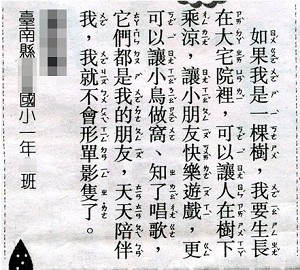 如果我是一棵樹，我要生長
在大宅院裡，可以讓人在樹下
乘涼，讓小朋友快樂遊戲，更
可以讓小鳥做窩、知了唱歌，
它們都是我的朋友，天天陪伴
我，我就不會形單影隻了。
臺南縣 國小一年 班